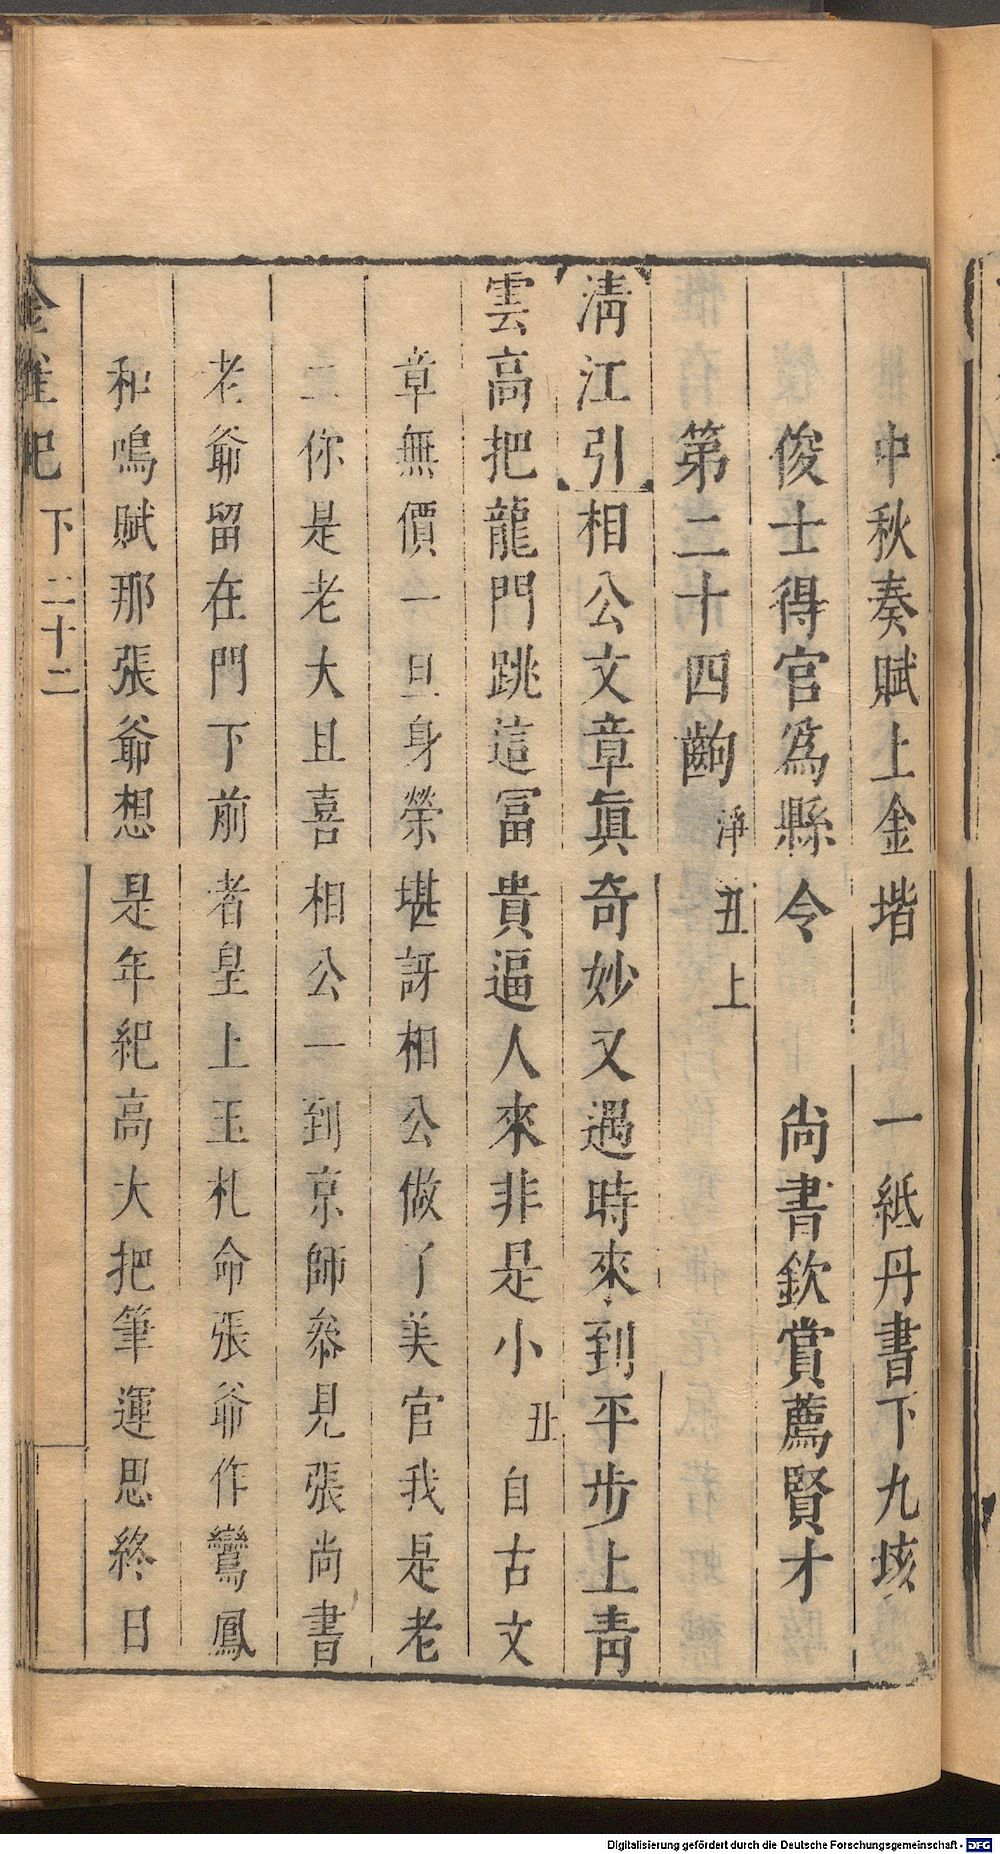 中秋奏賦上金堦　一紙丹書下九垓
俊士得官爲縣令　尚書欽賞薦賢才
第二十四齣 淨丑上
淸江引 相公文章眞奇妙又遇時來到平步上靑
雲高把龍門跳這冨貴逼人來非是小 丑 自古文
章無價一旦身榮堪訝相公做了美官我是老
二你是老大且喜相公一到京師叅見張尚書
老爺留在門下前者皇上玉札命張爺作鸞鳳
和鳴賦那張爺想是年紀高大把筆運思終日
金雀記 下 二十二
Digitalisierung gefördert durch die Deutsche Forschungsgemeinschaft - DFG